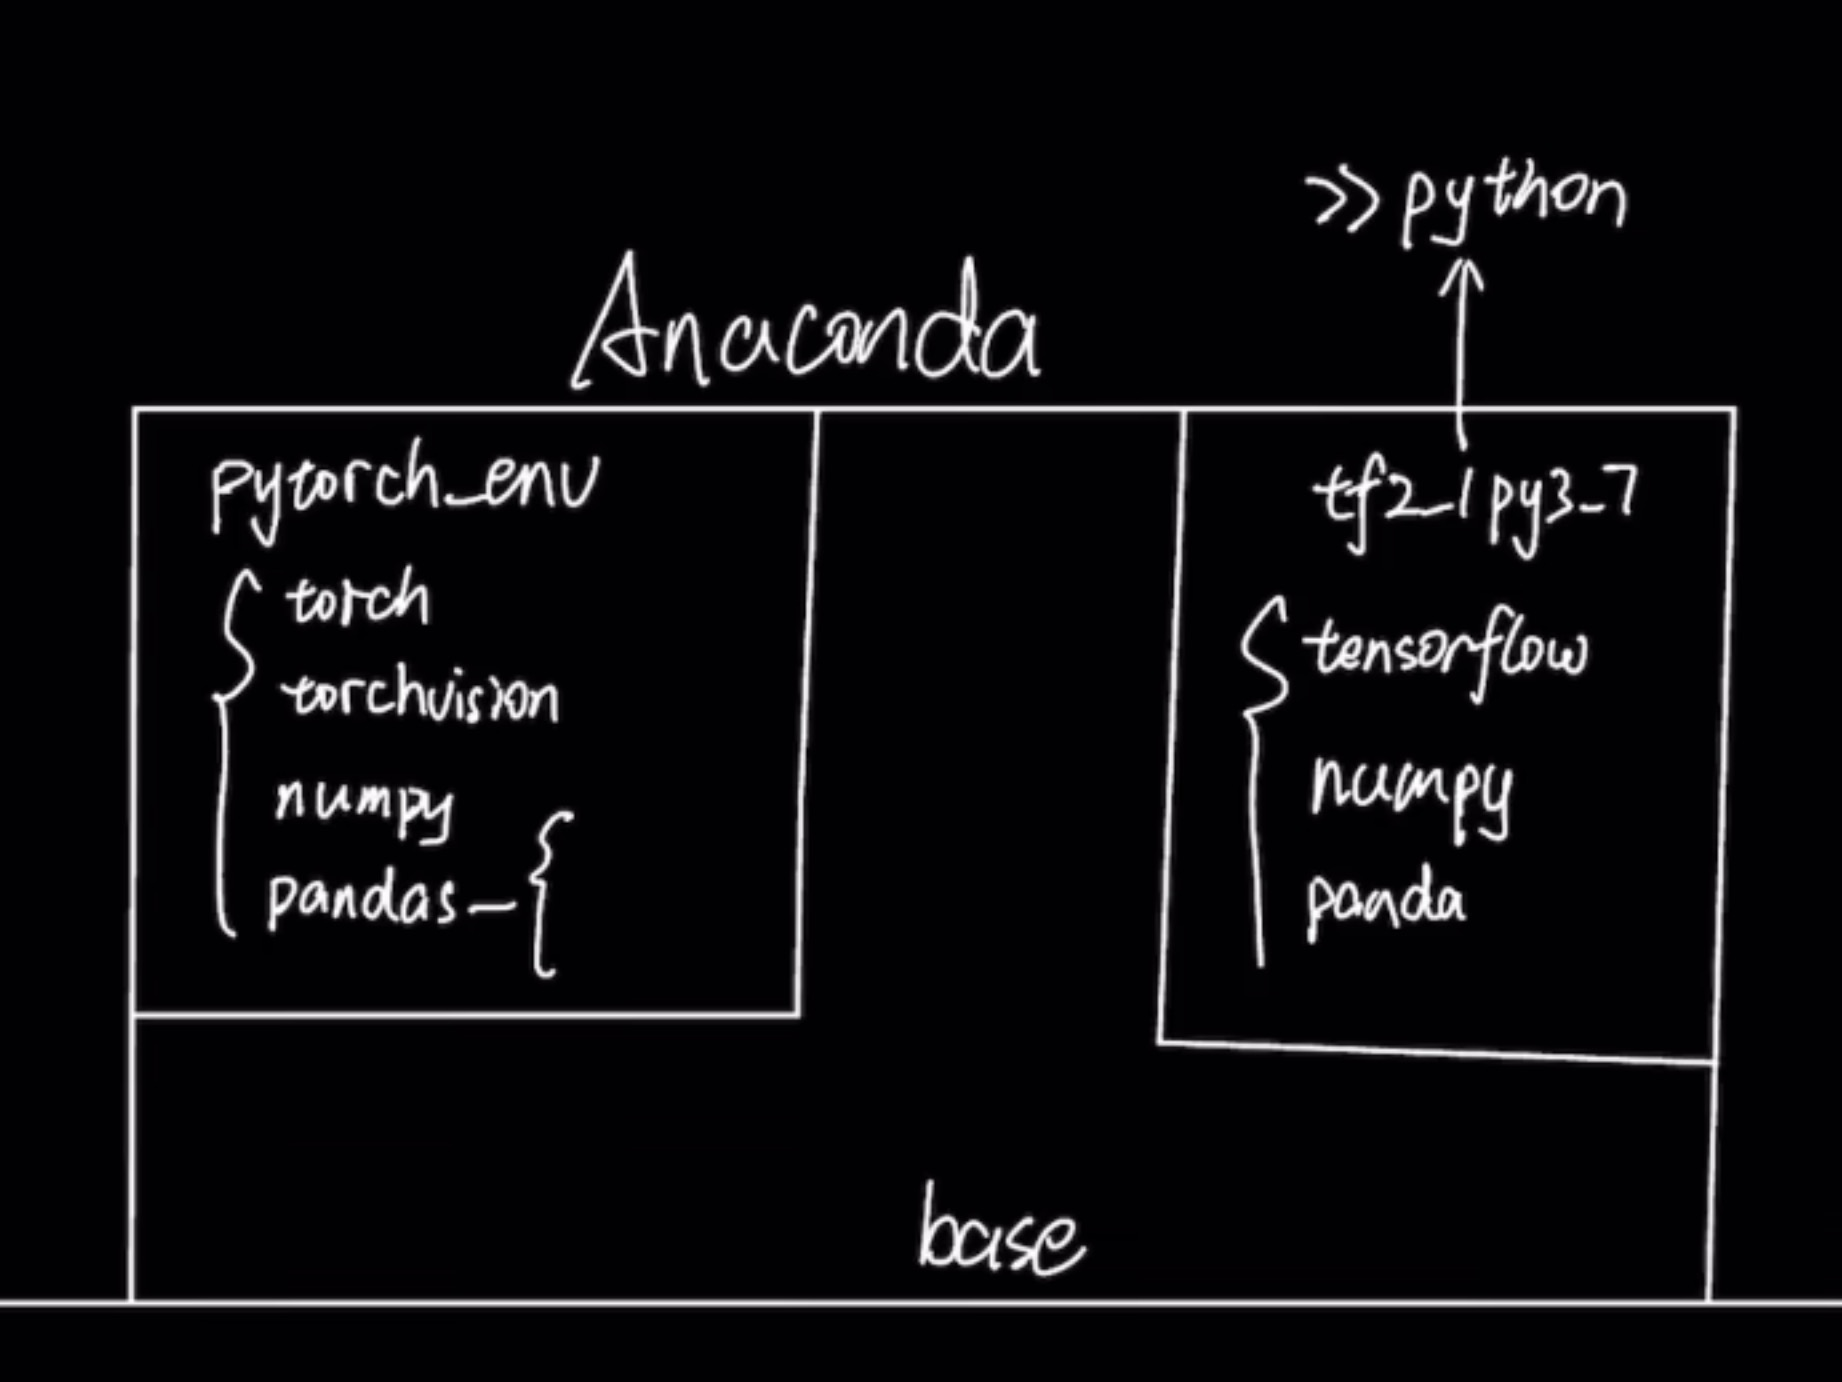 >> python
Anaconda
pytorch_env
torch
torchvision
numpy
pandas
tf2_1py3_7
tensorflow
numpy
panda
base